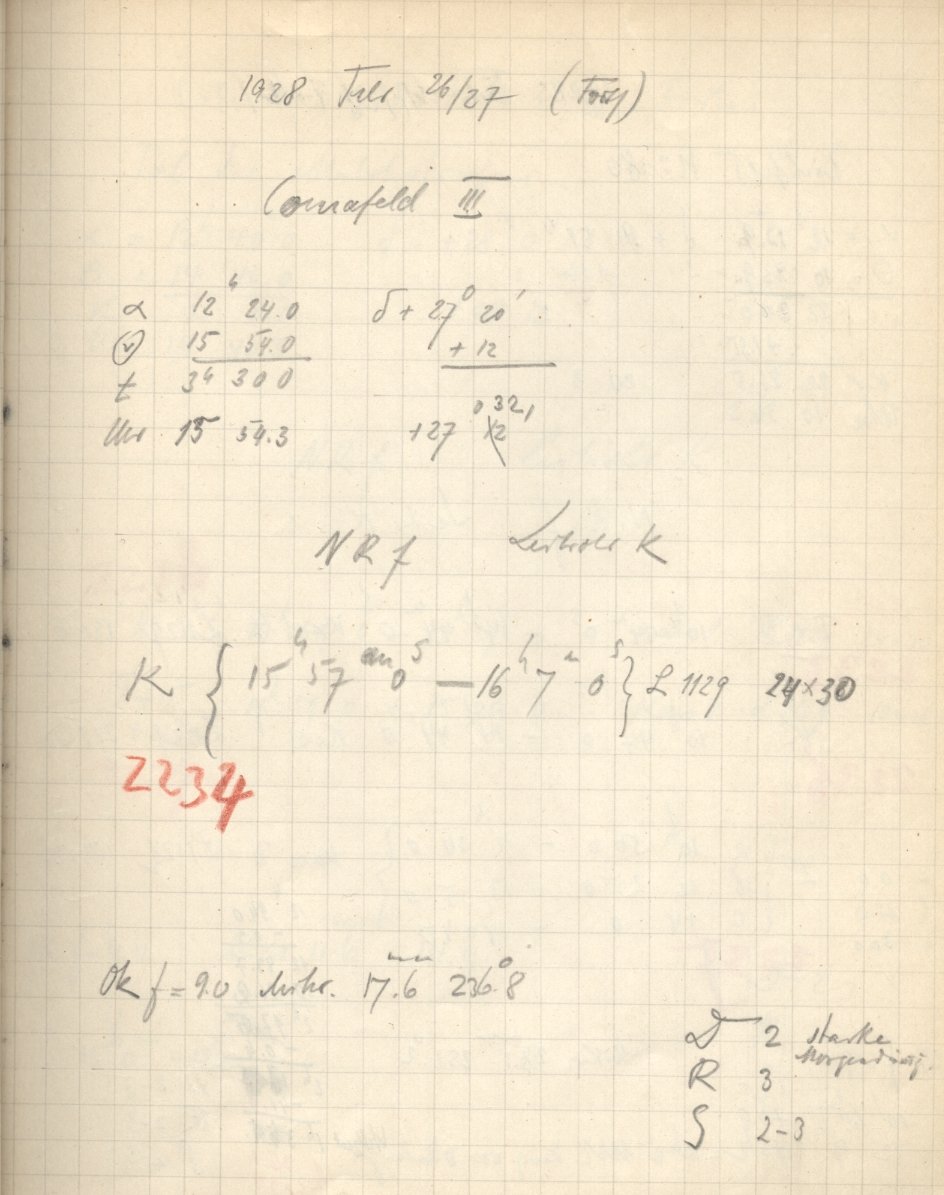 1928 Febr 26/27 (Forts)
Comafeld III
α 12ʰ 24.0 δ + 27° 20′
15 54.0 + 12
t 3ʰ 30 0
Uhr 15 54.3 +27 32
N R f Leitrohr K
K { 15ʰ 57ᵐ 0ˢ — 16ʰ 7ᵐ 0ˢ } L 1129 24×30
2234
Ok f = 9.0 Mikr. 17.6 236°.8
D 2 starke
R 3
S 2-3